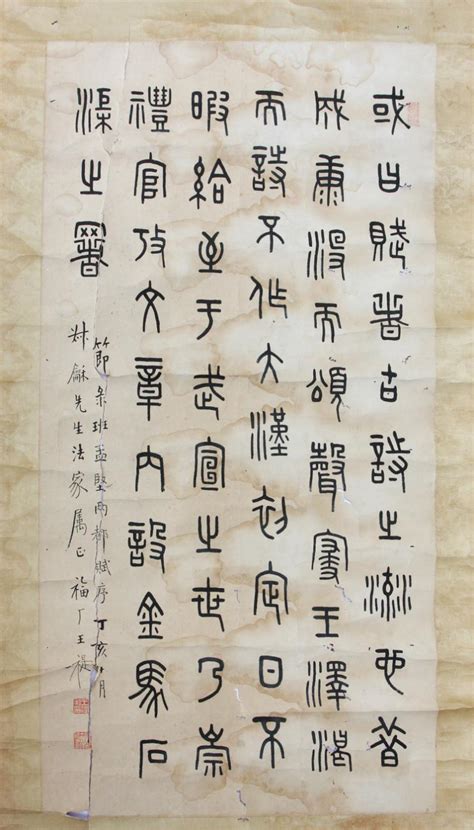 或曰賦者古詩之流也昔
成康沒而頌聲寑王澤渴
而詩不作大漢初定日不
暇給至于武宣之世乃崇
禮官攷文章内設金馬石
渠之署
節彔班孟堅兩都賦序丁亥月
尗龢先生法家属正 福厂王禔